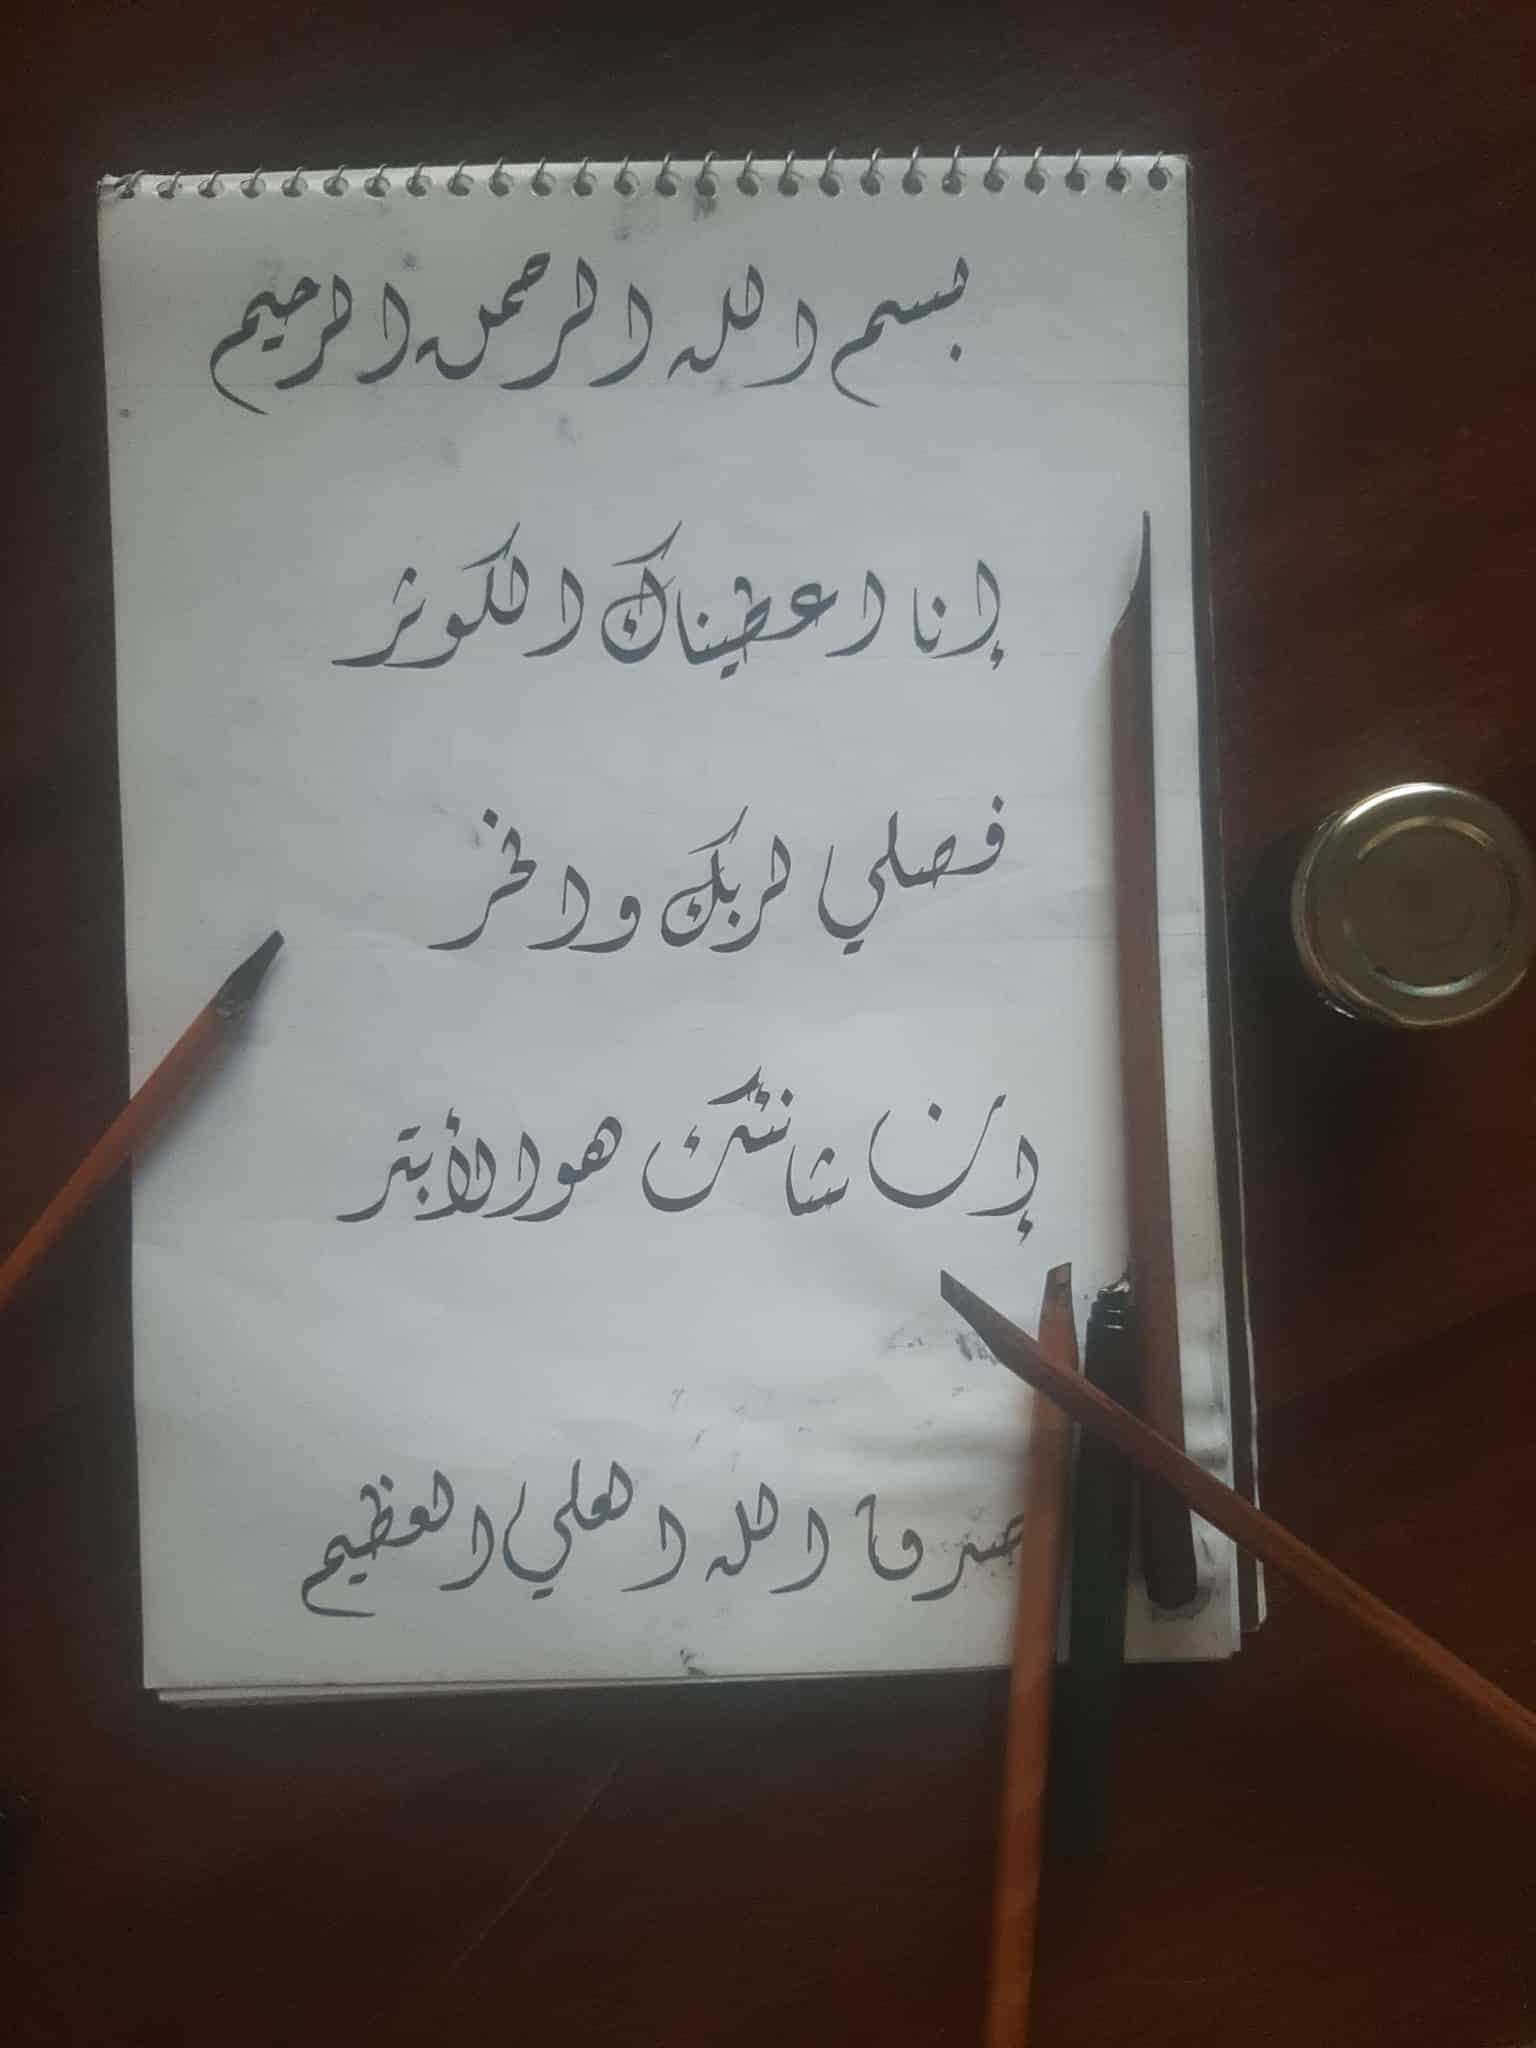 بسم الله الرحمن الرحيم
إنا اعطيناك الكوثر
فصلي لربك وانحر
إن شانئك هو الأبتر
صدق الله العلي العظيم